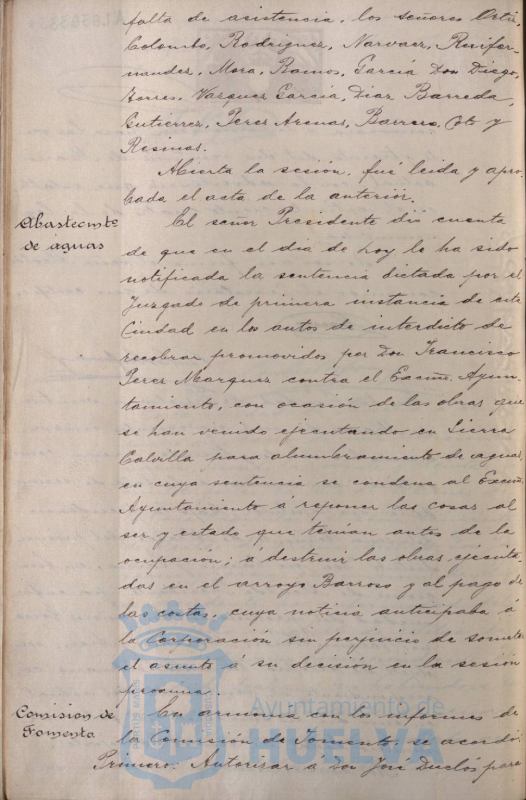 falta de asistencia, los señores Ortiz,
Colombo, Rodriguez, Narvaez, Ruifer-
nandez, Mora, Ramos, García Don Diego,
Torres, Vazquez García, Diaz Barreda,
Gutiérrez, Perez Arenas, Barrero, Coto y
Resinas.
Abierta la sesión, fué leida y apro-
bada el acta de la anterior.
Abastecimto
de aguas
El señor Presidente dió cuenta
de que en el dia de hoy le ha sido
notificada la sentencia dictada por el
Juzgado de primera instancia de esta
Ciudad en los autos de interdicto de
recobrar promovidos por Don Francisco
Perez Marquez contra el Excmo. Ayun-
tamiento, con ocasión de las obras que
se han venido ejecutando en Sierra
Calvilla para alumbramiento de aguas,
en cuya sentencia se condena al Excmo.
Ayuntamiento á reponer las cosas al
ser y estado que tenian antes de la
ocupación; á destruir las obras ejecuta-
das en el arroyo Barroso y al pago de
las costas, cuya noticia anticipaba á
la Corporación sin perjuicio de someter
el asunto á su decisión en la sesión
proxima.
Comision de
Fomento
En armonia con los informes de
la Comisión de Fomento, se acordó:
Primero: Autorizar a Don José Duclós para
Ayuntamiento de
HUELVA